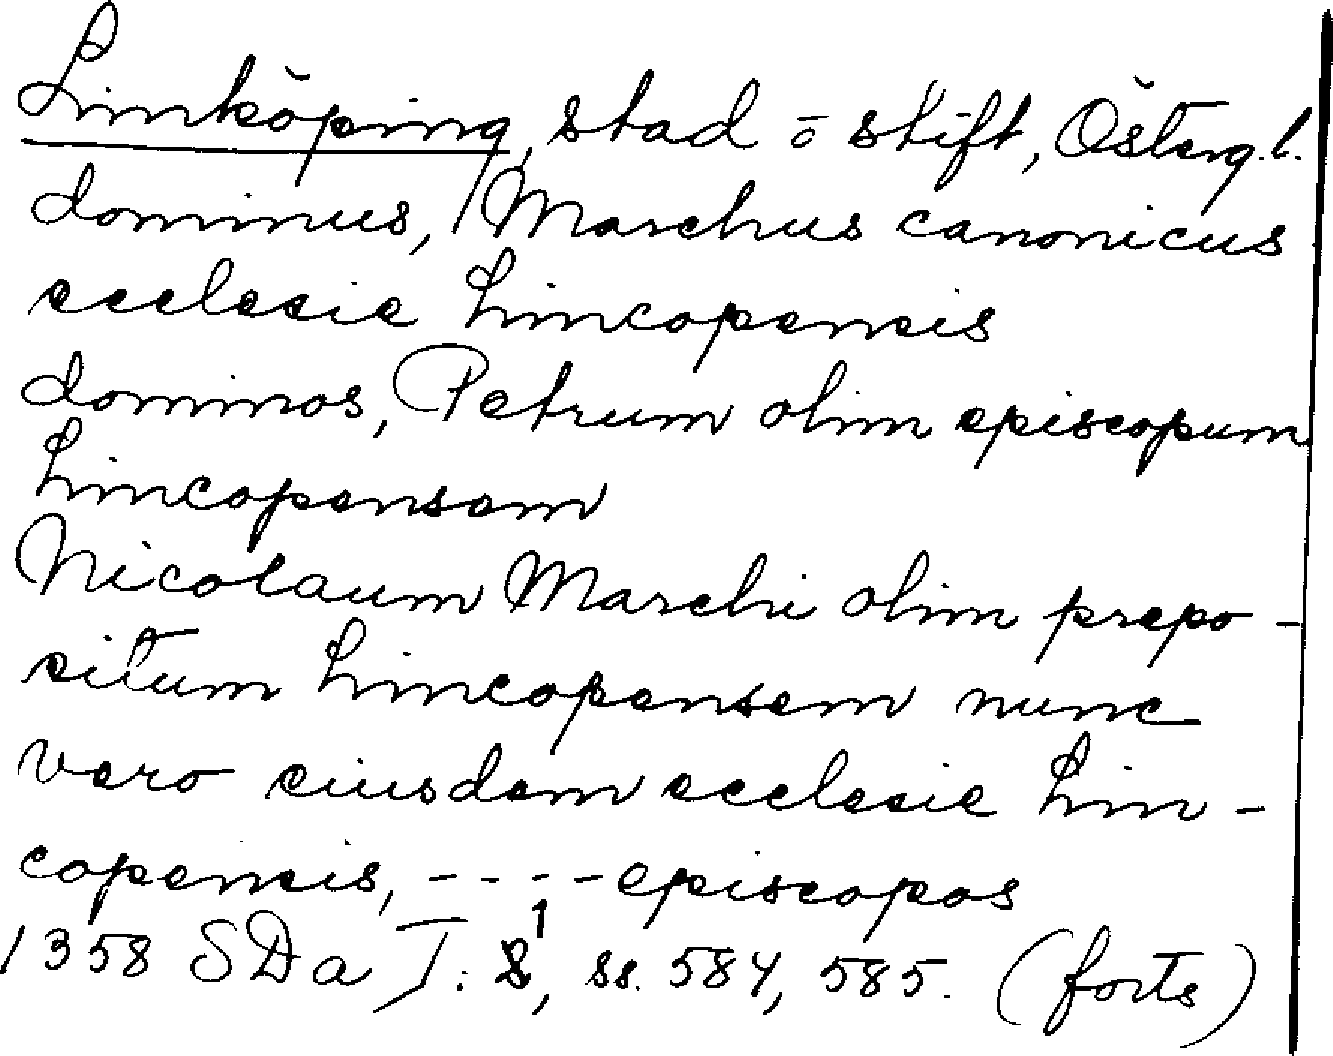 Linköping, stad o stift, Österg.l.
dominus, Marchus canonicus
ecclesie Lincopensis
dominos, Petrum olim episcopum
Lincopensem
Nicolaum Marchi olim prepo-
situm Lincopensem nunc
vero eiusdem ecclesie Lin-
copensis, ---- episcopos
1358 SDa I: 1, ss. 584, 585. (forts)